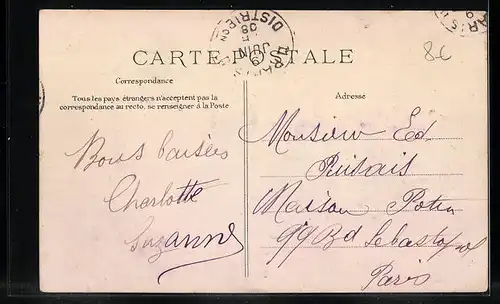 DISTRIBON
08
JUIN
9
8C
CARTE POSTALE
Correspondance
Tous les pays étrangers n'acceptent pas la
correspondance au recto, se renseigner à la Poste
Adresse
Bons baisers
Charlotte
Suzanne
Monsieur Ed
Maison Potin
99 Bd Sebastopol
Paris